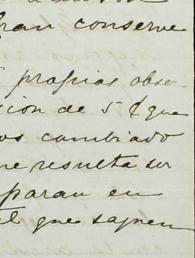 gran conserve
propias obser-
cion de 5 ¢ que
os cambiado
ne resulta ser
paran en
el que saquen